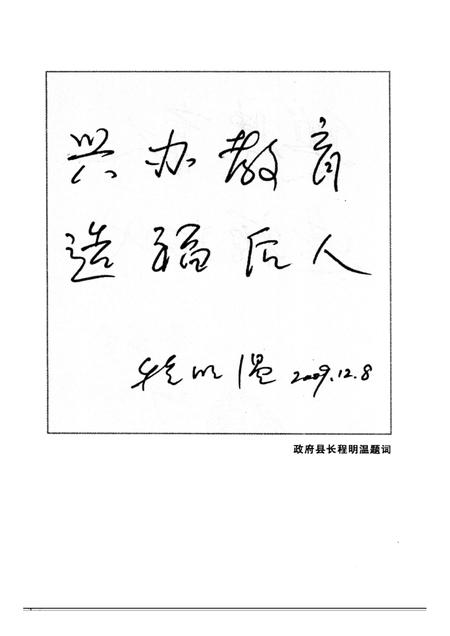 兴办教育
造福后人
程明温 2009.12.8
政府县长程明温题词